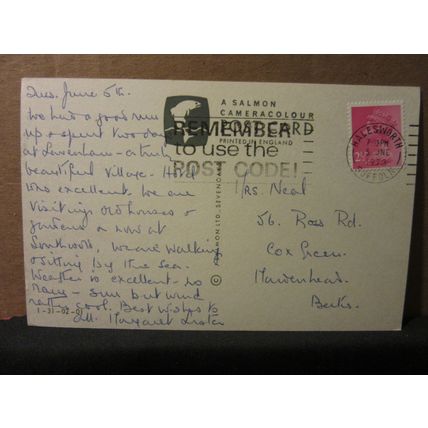 Tues. June 5th.
We had a good run
up & spent two days
at Lavenham - a truly
beautiful village. Hotel
was excellent. We are
visiting old houses &
gardens & now at
Southwold, we are walking
& sitting by the sea.
Weather is excellent - no
rain - sun but wind
rather cool. Best wishes to
all. Margaret
1-31-02-01
A SALMON
CAMERACOLOUR
POST CARD
PRINTED IN ENGLAND
REMEMBER
to use the
POST CODE!
HALESWORTH
5 JNE
1973
SUFFOLK
© J. SALMON LTD., SEVENOAKS
Mrs. Neal
56. Ross Rd.
Cox Green.
Maidenhead.
Berks.